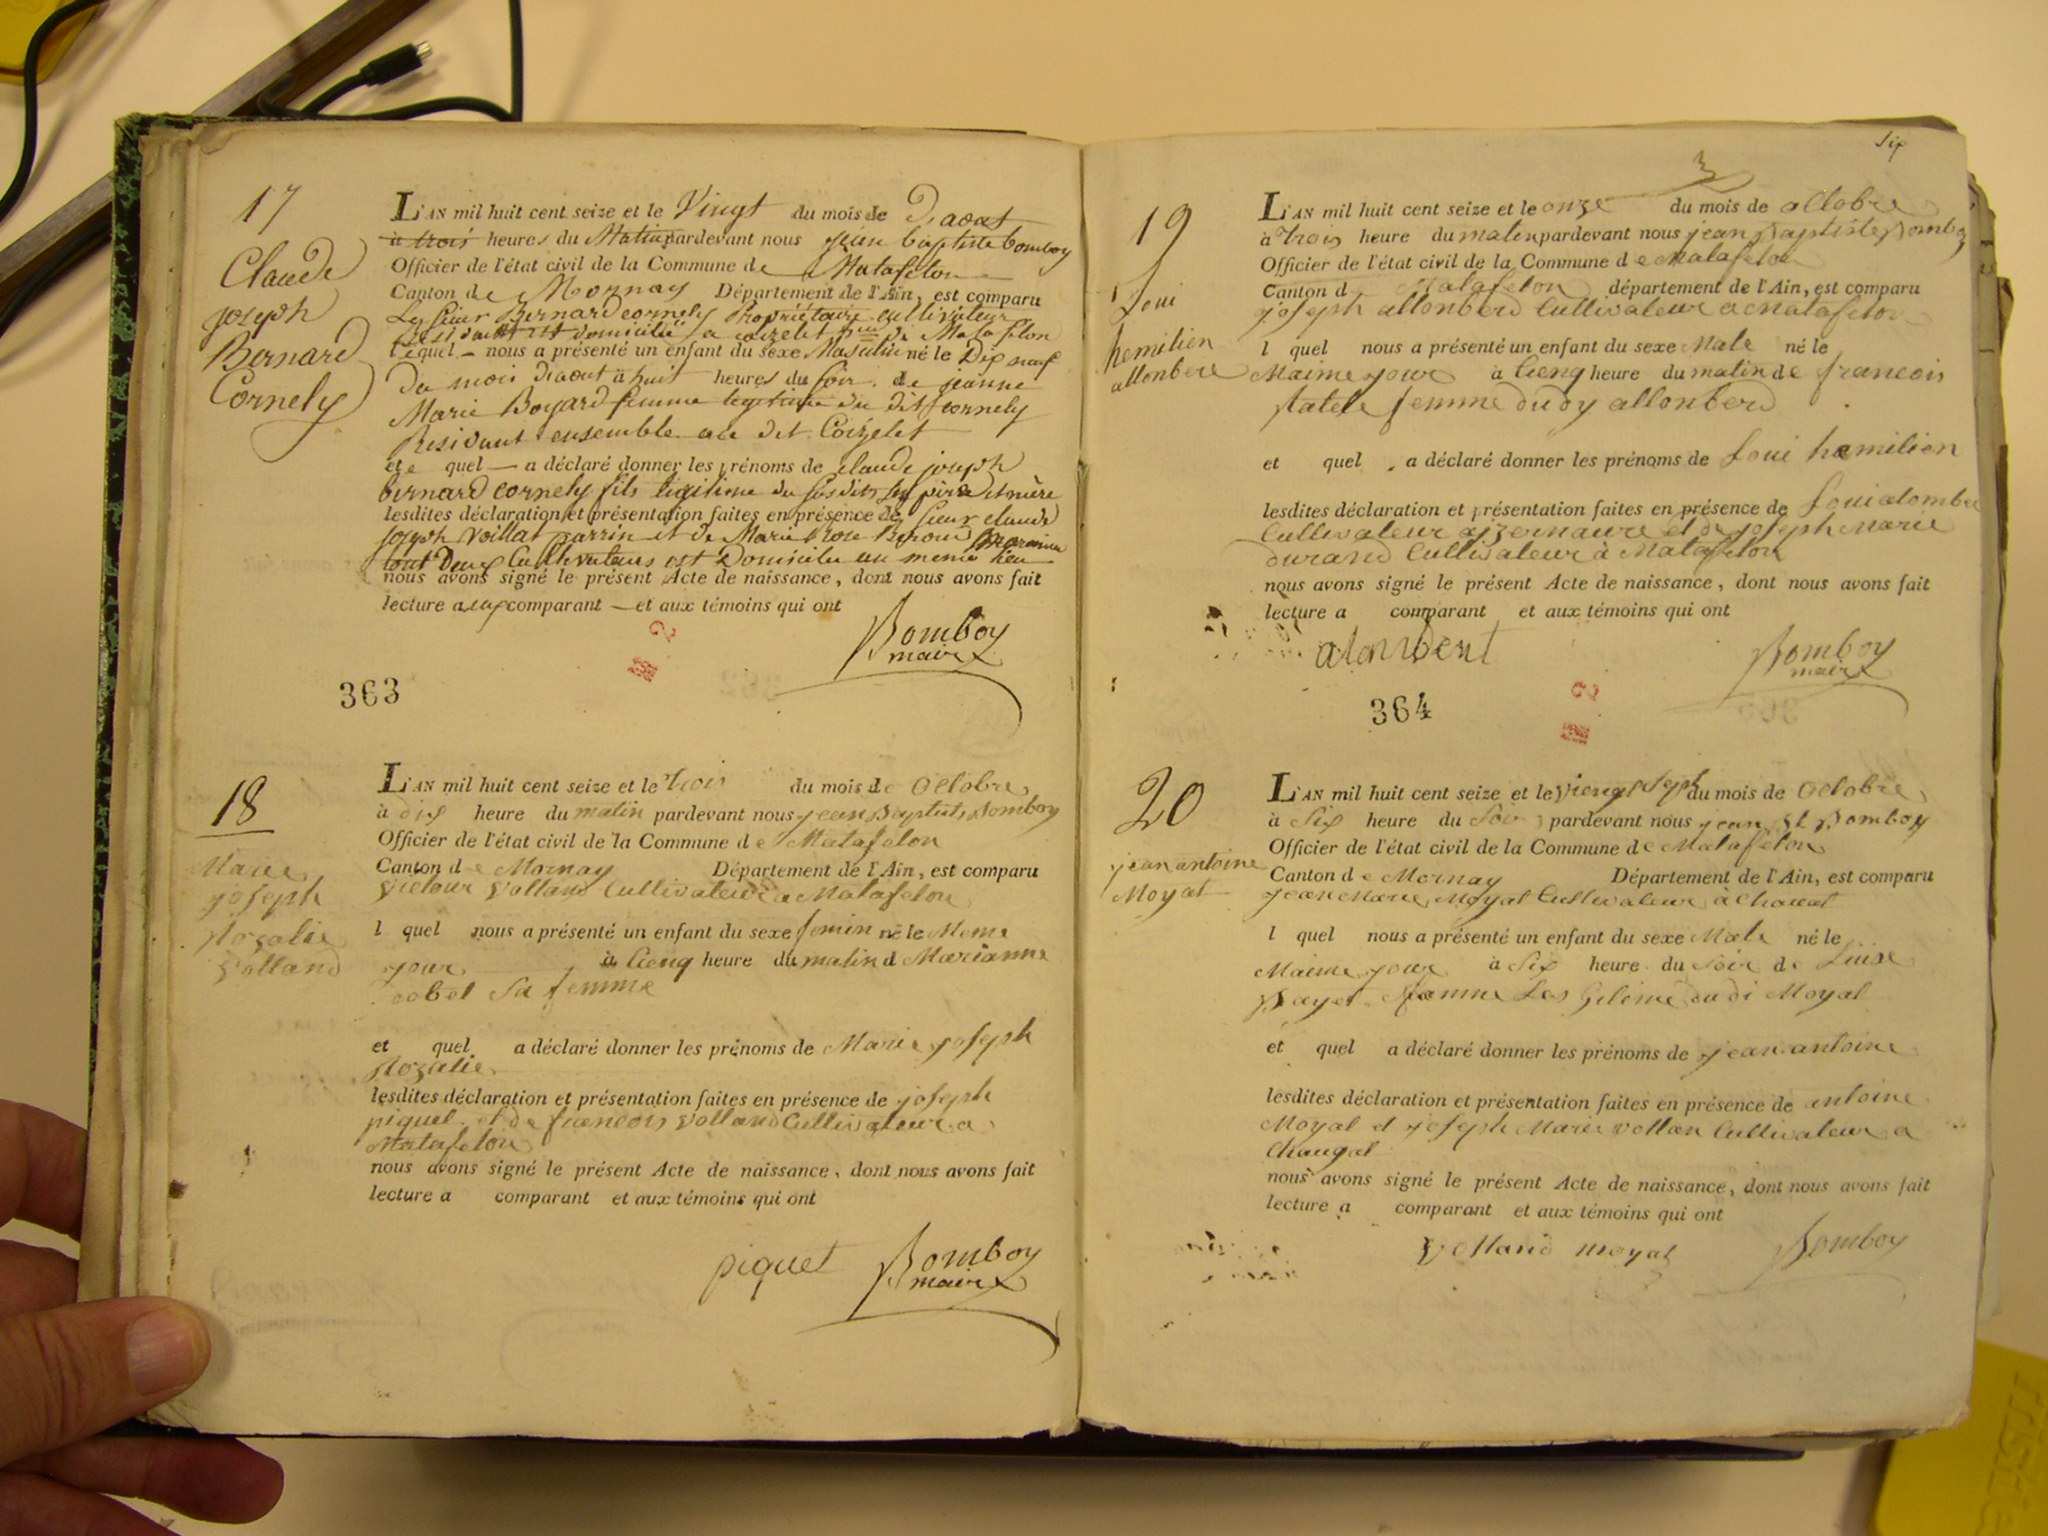 17
Claude
joseph
Bernard
Cornely
L'AN mil huit cent seize et le Vingt du mois de Diaout
à trois heures du Matin pardevant nous jean baptiste bomboy
Officier de l'état civil de la Commune de Matafelon
Canton de Mornay Département de l'Ain, est comparu
Le sieur Bernard cornely Propriétaire cultivateur
domicilié a coizelet de Matafelon
lequel nous a présenté un enfant du sexe Masculin né le Dix neuf
du mois diaout à huit heures du soir de jeanne
Marie Boyard femme legitime du dit cornely
Residant ensemble au dit Coizelet
et e quel a déclaré donner les prénoms de claude joseph
bernard cornely fils legitime du susdits père et mère
lesdites déclaration et présentation faites en présence de sieur claude
joseph Voillat parrin et de Marie Rose marraine
tout Deux Cultivateurs est Domicilie au meme lieu
nous avons signé le présent Acte de naissance, dont nous avons fait
lecture aux comparant et aux témoins qui ont
Bomboy
maire
363
18
Marie
joseph
Rozalie
Volland
L'AN mil huit cent seize et le trois du mois de Octobre
à dix heure du matin pardevant nous jean Baptiste Bomboy
Officier de l'état civil de la Commune de Matafelon
Canton de Mornay Département de l'Ain, est comparu
Victour Volland Cultivateur a Matafelon
l quel nous a présenté un enfant du sexe femin né le Meme
jour à cienq heure du matin d Marianne
sa femme
et quel a déclaré donner les prénoms de Marie joseph
Rozalie
lesdites déclaration et présentation faites en présence de joseph
piquet et de francois Volland Cultivateur a
Matafelon
nous avons signé le présent Acte de naissance, dont nous avons fait
lecture a comparant et aux témoins qui ont
piquet Bomboy
maire
six
19
Loui
hemilien
allonbere
L'AN mil huit cent seize et le onze du mois de octobre
à trois heure du matin pardevant nous jean Baptiste Bomboy
Officier de l'état civil de la Commune de Matafelon
Canton d Matafelon département de l'Ain, est comparu
joseph allonberd Cultivateur a Matafelon
l quel nous a présenté un enfant du sexe Male né le
Maime jour à cienq heure du matin de francois
femme du dy allonberd
et quel a déclaré donner les prénoms de Loui hemilien
lesdites déclaration et présentation faites en présence de Loui alombe
Cultivateur a izernaure et de joseph Marie
durand Cultivateur à Matafelon
nous avons signé le présent Acte de naissance, dont nous avons fait
lecture a comparant et aux témoins qui ont
alonbert Bomboy
maire
364
20
jean antoine
Moyat
L'AN mil huit cent seize et le viengt seph du mois de Octobre
à Six heure du Soir pardevant nous jean Bt Bomboy
Officier de l'état civil de la Commune de Matafelon
Canton de Mornay Département de l'Ain, est comparu
jean Marie Moyat Cultivateur à
l quel nous a présenté un enfant du sexe Male né le
Maime jour à Six heure du Soir de Luise
femme Les Gitime du di Moyat
et quel a déclaré donner les prénoms de jean antoine
lesdites déclaration et présentation faites en présence de antoine
Moyat et joseph Marie vollan Cultivateur a
Chaugat
nous avons signé le présent Acte de naissance, dont nous avons fait
lecture a comparant et aux témoins qui ont
Volland moyat Bomboy